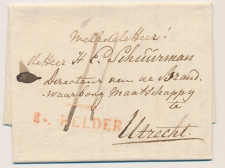 WelEdele Heer!
de Heer H P. Schuurman
Directeur van de Brand
waarborg Maatschappy
te
Utrecht.
HELDER